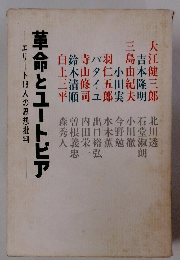 大江健三郎
吉本隆明
三島由紀夫
小田実
羽仁五郎
バタイユ
寺山修司
鈴木清順
白土三平
北川透
石堂淑朗
小川徹
今野勉
水木薫
出口裕弘
内田栄一
曽根義忠
森秀人
革命とユートピア
エリート18人の思想批判